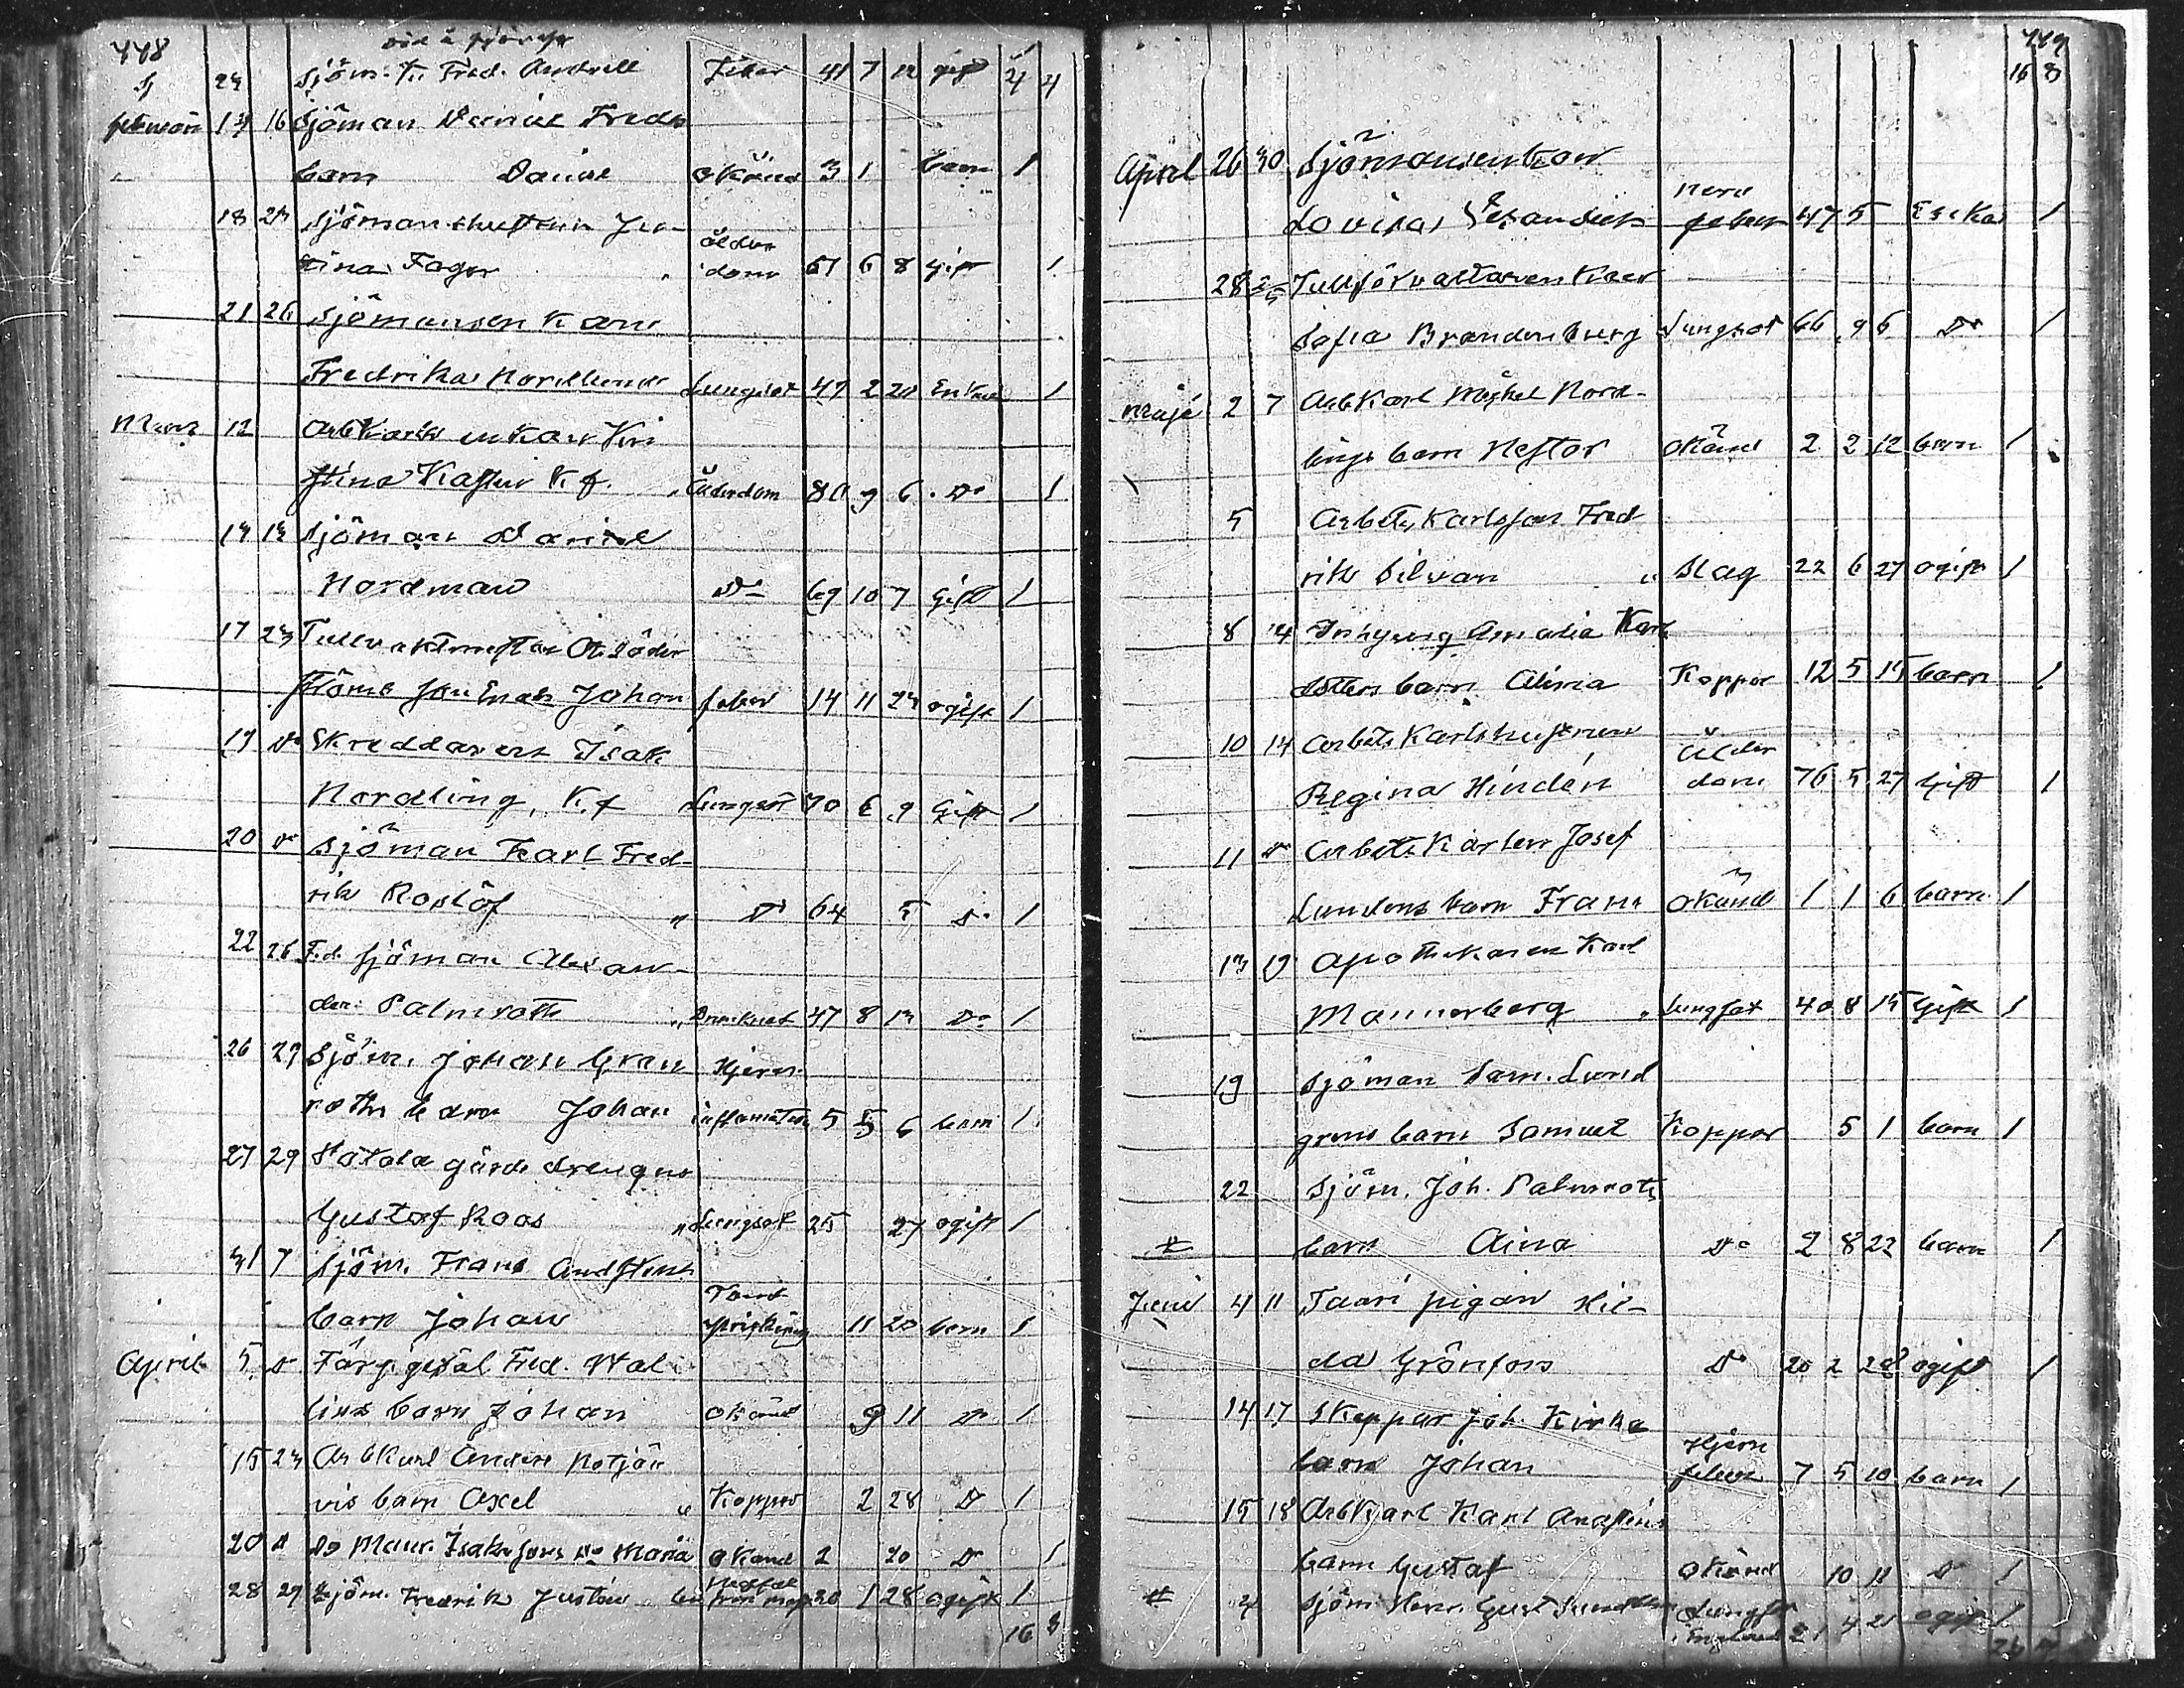 448
24 Sjöm. Fred. Feber 41 7 12 gift 4 4
14 16 Sjöman Daniel Freds
barn Daniel okänd 3 1 barn 1
18 24 Sjömanshustrun
tina Fager ålder
dom 61 6 8 Gift 1
21 26 Sjömansenkan
Fredrika Nordlund Lungsot 47 2 20 Enka 1
Mars 12 Arbkarls enkan Kri
stina K.f. Ålderdom 80 9 6 Do 1
14 14 Sjöman Daniel
Nordman Do 69 10 7 Gift 1
17 23 Tullvaktmästar Söder
ströms son Johan feber 14 11 24 ogift 1
19 Do Skreddaren Isak
Nordling, K.f Lungsot 70 6 9 Gift 1
20 Do Sjöman Karl Fred-
rik Roslöf " Do 64 5 Do 1
22 26 F.d. Sjöman Alexan-
der Palmroth " Drunknat 47 8 14 Do 1
26 29 Sjöm. Johan Gran Hjern
roths barn Johan inflamation 5 5 6 barn 1
27 29 gårds drengen
Gustaf Roos " Lungsot 25 27 ogift 1
31 7 Sjöm. Frans
barn Johan Tand
sprickning 11 20 barn 1
April 5 Do Färg.gesäl Fred. Wal-
lins barn Johan okänd 9 11 Do 1
15 23 Arbkarl
vis barn Axel " Koppor 2 28 Do 1
20 Do Maur. Isakssons Do Maria okänd 2 20 Do 1
28 29 Sjöm. Fredrik Justin från 20 1 28 ogift 1
16 8
449
16 8
April 26 30 Sjömansenkan
Lovisa nerv
feber 47 5 Enka 1
28 2/5 Tullförvaltaren Kaer
Sofia Brandenburg Lungsot 66 9 6 Do 1
Maji 2 7 Arbkarl Mickel Nord-
lings barn Nestor okänd 2 2 12 barn 1
5 Arbets Karlssons Fred
rik Silvan " Slag 22 6 27 ogift 1
8 14 Inhysing Amalia Karls
dotters barn Alina Koppor 12 5 15 barn 1
10 14 Arbets Karlshustrun
Regina Hindén Ålder
dom 76 5 27 Gift 1
11 Do Arbets Karlen Josef
Lundens barn Frans okänd 1 1 6 barn 1
13 19 Apothekaren Karl
Mannerberg " Lungsot 40 8 15 Gift 1
19 Sjöman Sam. Lund
grens barn Samuel Koppor 5 1 barn 1
22 Sjöm. Joh. Palmroth
barn Aina Do 2 8 22 barn 1
Juni 4 11 Taari pigan Hil-
da Grönfors Do 20 2 28 ogift 1
14 17 Skeppar Joh. Kirka
barn Johan Hjern
feber 7 5 10 barn 1
15 18 Arbkarl Karl
barn Gustaf okänd 10 11 Do 1
4 Sjöm. Herm. Gust. Lungsot
i England 21 4 21 ogift 1